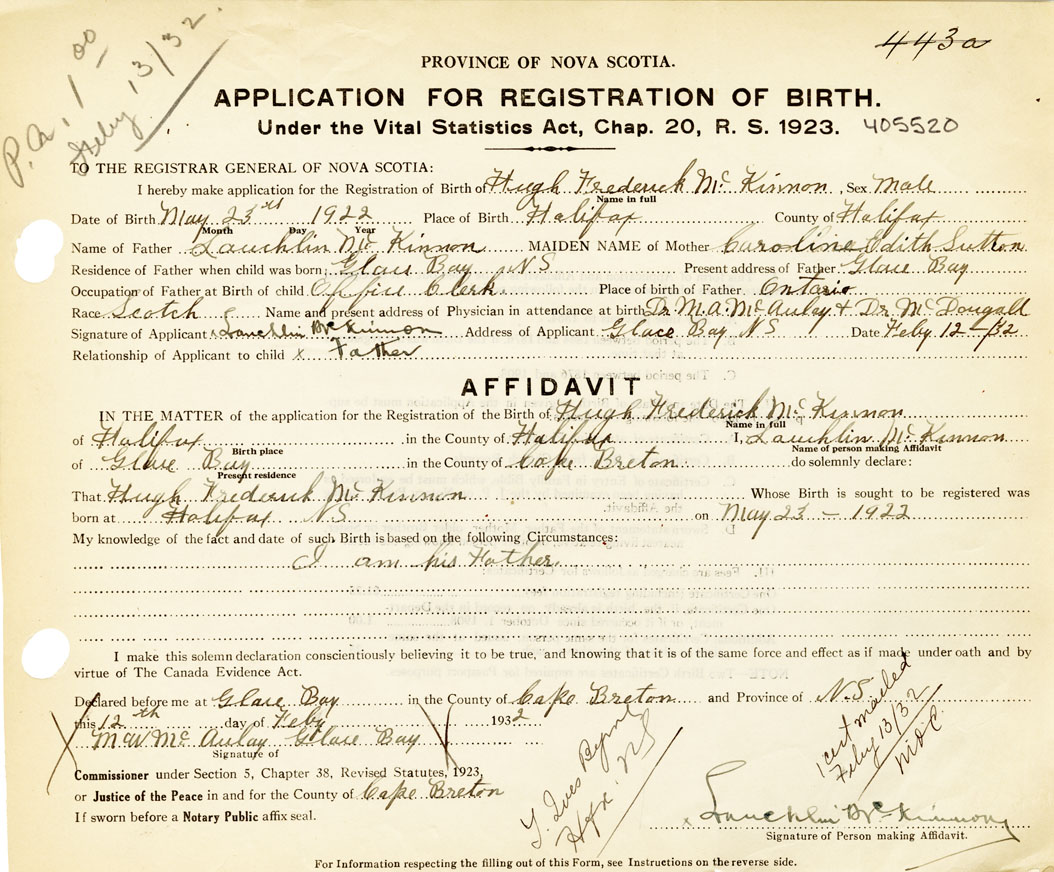 P.a. 1.00
Feby 13/32.
443a
PROVINCE OF NOVA SCOTIA.
APPLICATION FOR REGISTRATION OF BIRTH.
Under the Vital Statistics Act, Chap. 20, R. S. 1923. 405520
TO THE REGISTRAR GENERAL OF NOVA SCOTIA:
I hereby make application for the Registration of Birth of Hugh Frederick Mc Kinnon, Sex Male
Name in full
Date of Birth May 23rd 1922 Place of Birth Halifax County of Halifax
Month Day Year
Name of Father Lauchlin Mc Kinnon MAIDEN NAME of Mother Caroline Edith Sutton
Residence of Father when child was born Glace Bay NS Present address of Father Glace Bay
Occupation of Father at Birth of child Office Clerk Place of birth of Father Ontario
Race Scotch Name and present address of Physician in attendance at birth Dr. M.A. McAulay & Dr. McDougall
Signature of Applicant x Lauchlin McKinnon Address of Applicant Glace Bay NS Date Feby 12 - /32
Relationship of Applicant to child x Father
AFFIDAVIT
IN THE MATTER of the application for the Registration of the Birth of Hugh Frederick Mc Kinnon
Name in full
of Halifax in the County of Halifax I, Lauchlin McKinnon
Birth place Name of person making Affidavit
of Glace Bay in the County of Cape Breton do solemnly declare:
Present residence
That Hugh Frederick Mc Kinnon Whose Birth is sought to be registered was
born at Halifax NS on May 23 - 1922
My knowledge of the fact and date of such Birth is based on the following Circumstances:
I am his Father
I make this solemn declaration conscientiously believing it to be true, and knowing that it is of the same force and effect as if made under oath and by
virtue of The Canada Evidence Act.
Declared before me at Glace Bay in the County of Cape Breton and Province of N.S.
this 12th day of Feby 1932
M W McAulay Glace Bay
Signature of
Commissioner under Section 5, Chapter 38, Revised Statutes, 1923,
or Justice of the Peace in and for the County of Cape Breton
If sworn before a Notary Public affix seal.
Hfx. NS
1 cert mailed
Feby 13/32
x Lauchlin McKinnon
Signature of Person making Affidavit.
For Information respecting the filling out of this Form, see Instructions on the reverse side.